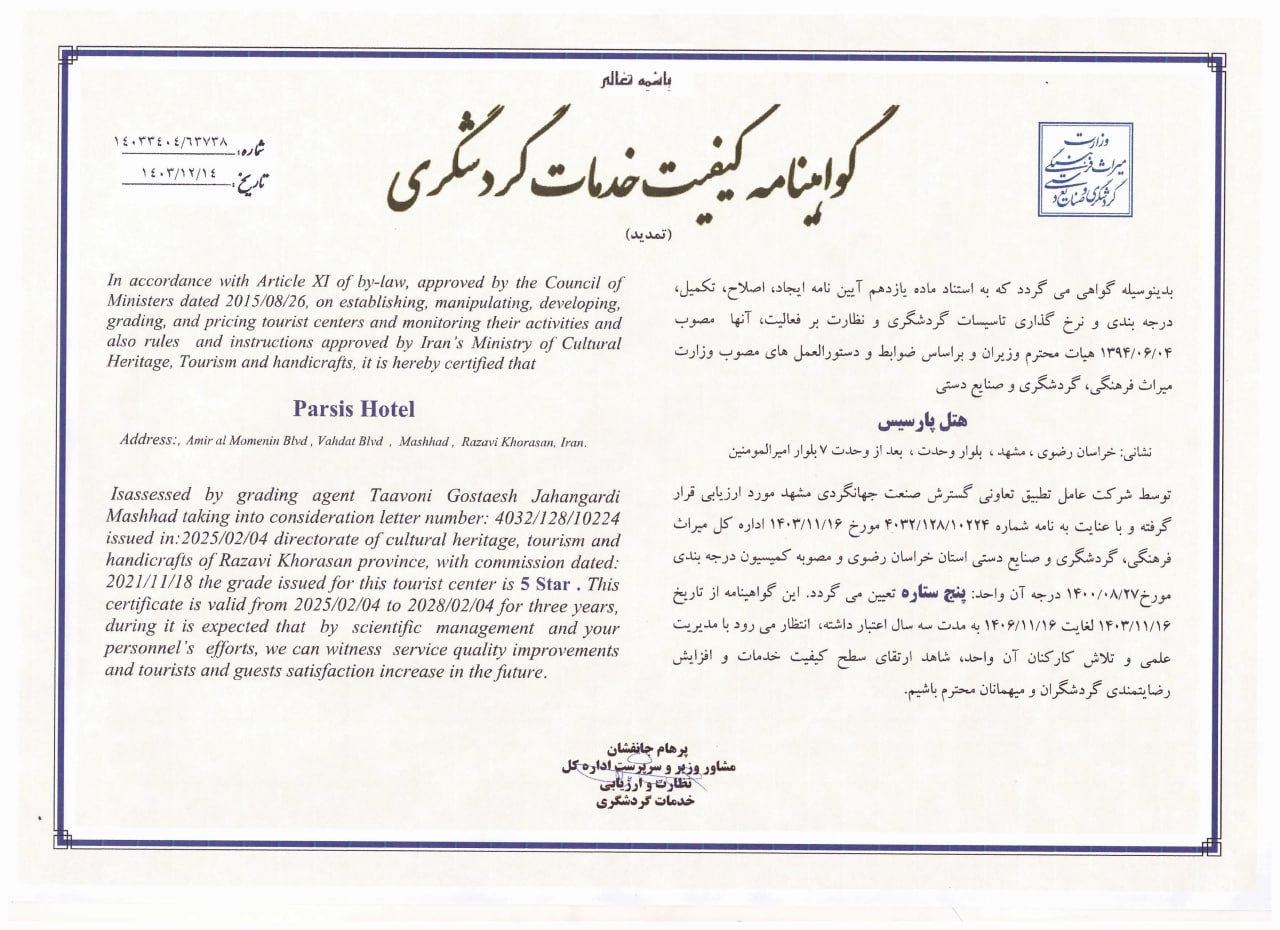 باسمه تعالی
گواهینامه کیفیت خدمات گردشگری
(تمدید)
شماره: ۱۴۰۳۳۴۰۴/۶۳۷۳۸
تاریخ: ۱۴۰۳/۱۲/۱۴
وزارت
میراث فرهنگی
گردشگری و صنایع دستی
In accordance with Article XI of by-law, approved by the Council of
Ministers dated 2015/08/26, on establishing, manipulating, developing,
grading, and pricing tourist centers and monitoring their activities and
also rules and instructions approved by Iran's Ministry of Cultural
Heritage, Tourism and handicrafts, it is hereby certified that
Parsis Hotel
Address:, Amir al Momenin Blvd , Vahdat Blvd , Mashhad , Razavi Khorasan, Iran.
Isassessed by grading agent Taavoni Gostaesh Jahangardi
Mashhad taking into consideration letter number: 4032/128/10224
issued in:2025/02/04 directorate of cultural heritage, tourism and
handicrafts of Razavi Khorasan province, with commission dated:
2021/11/18 the grade issued for this tourist center is 5 Star . This
certificate is valid from 2025/02/04 to 2028/02/04 for three years,
during it is expected that by scientific management and your
personnel's efforts, we can witness service quality improvements
and tourists and guests satisfaction increase in the future.
بدینوسیله گواهی می گردد که به استناد ماده یازدهم آیین نامه ایجاد، اصلاح، تکمیل،
درجه بندی و نرخ گذاری تاسیسات گردشگری و نظارت بر فعالیت، آنها مصوب
۱۳۹۴/۰۶/۰۴ هیات محترم وزیران و براساس ضوابط و دستورالعمل های مصوب وزارت
میراث فرهنگی، گردشگری و صنایع دستی
هتل پارسیس
نشانی: خراسان رضوی ، مشهد ، بلوار وحدت ، بعد از وحدت ۷ بلوار امیرالمومنین
توسط شرکت عامل تطبیق تعاونی گسترش صنعت جهانگردی مشهد مورد ارزیابی قرار
گرفته و با عنایت به نامه شماره ۴۰۳۲/۱۲۸/۱۰۲۲۴ مورخ ۱۴۰۳/۱۱/۱۶ اداره کل میراث
فرهنگی، گردشگری و صنایع دستی استان خراسان رضوی و مصوبه کمیسیون درجه بندی
مورخ۱۴۰۰/۰۸/۲۷ درجه آن واحد: پنج ستاره تعیین می گردد. این گواهینامه از تاریخ
۱۴۰۳/۱۱/۱۶ لغایت ۱۴۰۶/۱۱/۱۶ به مدت سه سال اعتبار داشته، انتظار می رود با مدیریت
علمی و تلاش کارکنان آن واحد، شاهد ارتقای سطح کیفیت خدمات و افزایش
رضایتمندی گردشگران و میهمانان محترم باشیم.
پرهام جانفشان
مشاور وزیر و سرپرست اداره کل
نظارت و ارزیابی
خدمات گردشگری